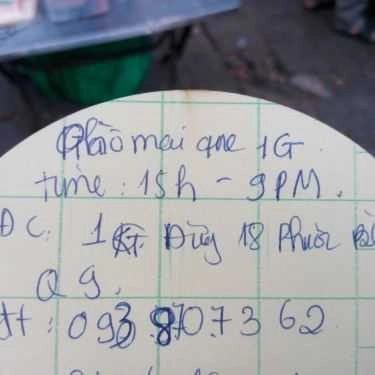 mai que 1G
time : 15h - 9PM.
ĐC: 1 Đừg 18 Phước
Q9.
đt : 093 8707362